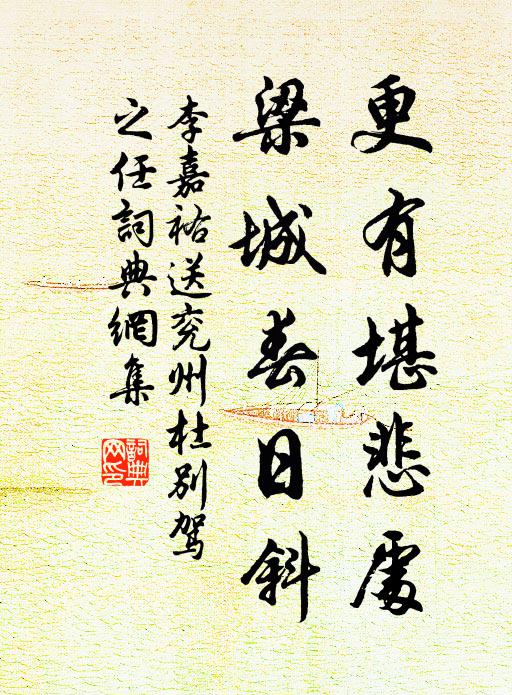 更有堪悲處
梁城春日斜
李嘉祐送兖州杜别駕
之任詞典網集
詞典
网印